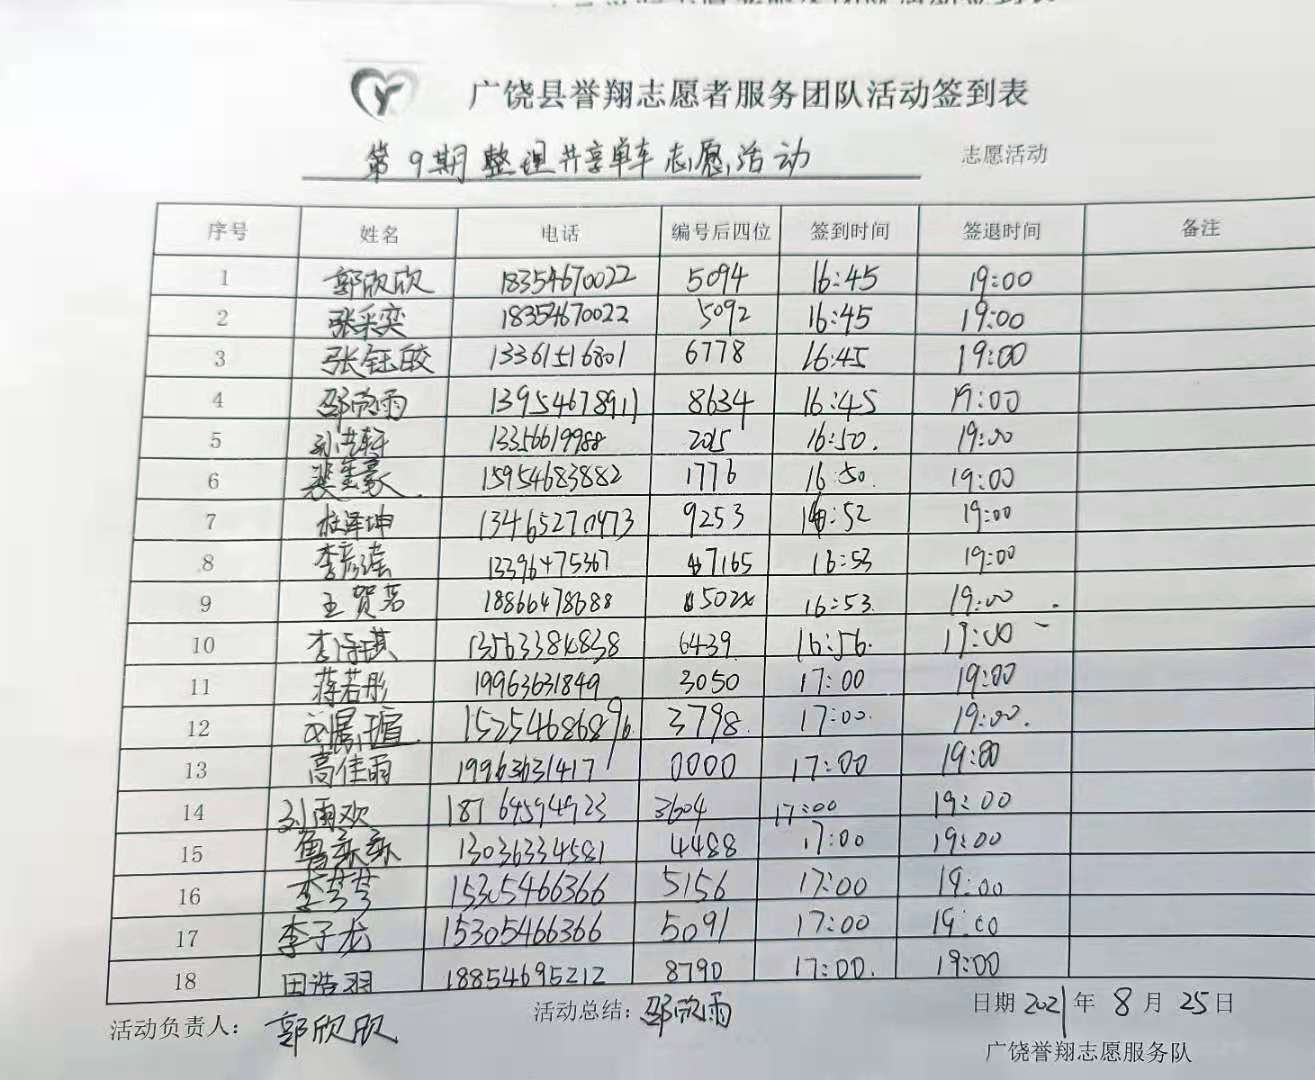 广饶县誉翔志愿者服务团队活动签到表
第9期整理共享单车志愿活动 志愿活动
序号 姓名 电话 编号后四位 签到时间 签退时间 备注
1 郭欣欣 18354670022 5094 16:45 19:00
2 张采奕 18354670022 5092 16:45 19:00
3 张钰皎 13361516801 6778 16:45 19:00
4 邵欣雨 13954678911 8634 16:45 19:00
5 孙浩轩 13356619988 2015 16:50. 19:00
6 裴星豪 15954683882 1776 16:50. 19:00
7 杜泽坤 13465270473 9253 16:52 19:00
8 李彦 13396475367 7165 16:53 19:00
9 王贺茗 18866478688 502x 16:53. 19:00
10 李诗琪 13563384838 6439 16:56. 19:00
11 蒋若彤 19963631849 3050 17:00 19:00
12 刘晨瑄 15254686896 3798. 17:00. 19:00.
13 高佳雨 19963631417 0000 17:00 19:00
14 刘雨欢 18764594923 3604 17:00 19:00
15 鲁 13036334581 4488 17:00 19:00
16 李芩芩 15305466366 5156 17:00 19:00
17 李子龙 15305466366 5091 17:00 19:00
18 田浩羽 18854695212 8790 17:00. 19:00
活动负责人： 郭欣欣 活动总结：邵欣雨 日期 2021 年 8 月 25 日
广饶誉翔志愿服务队